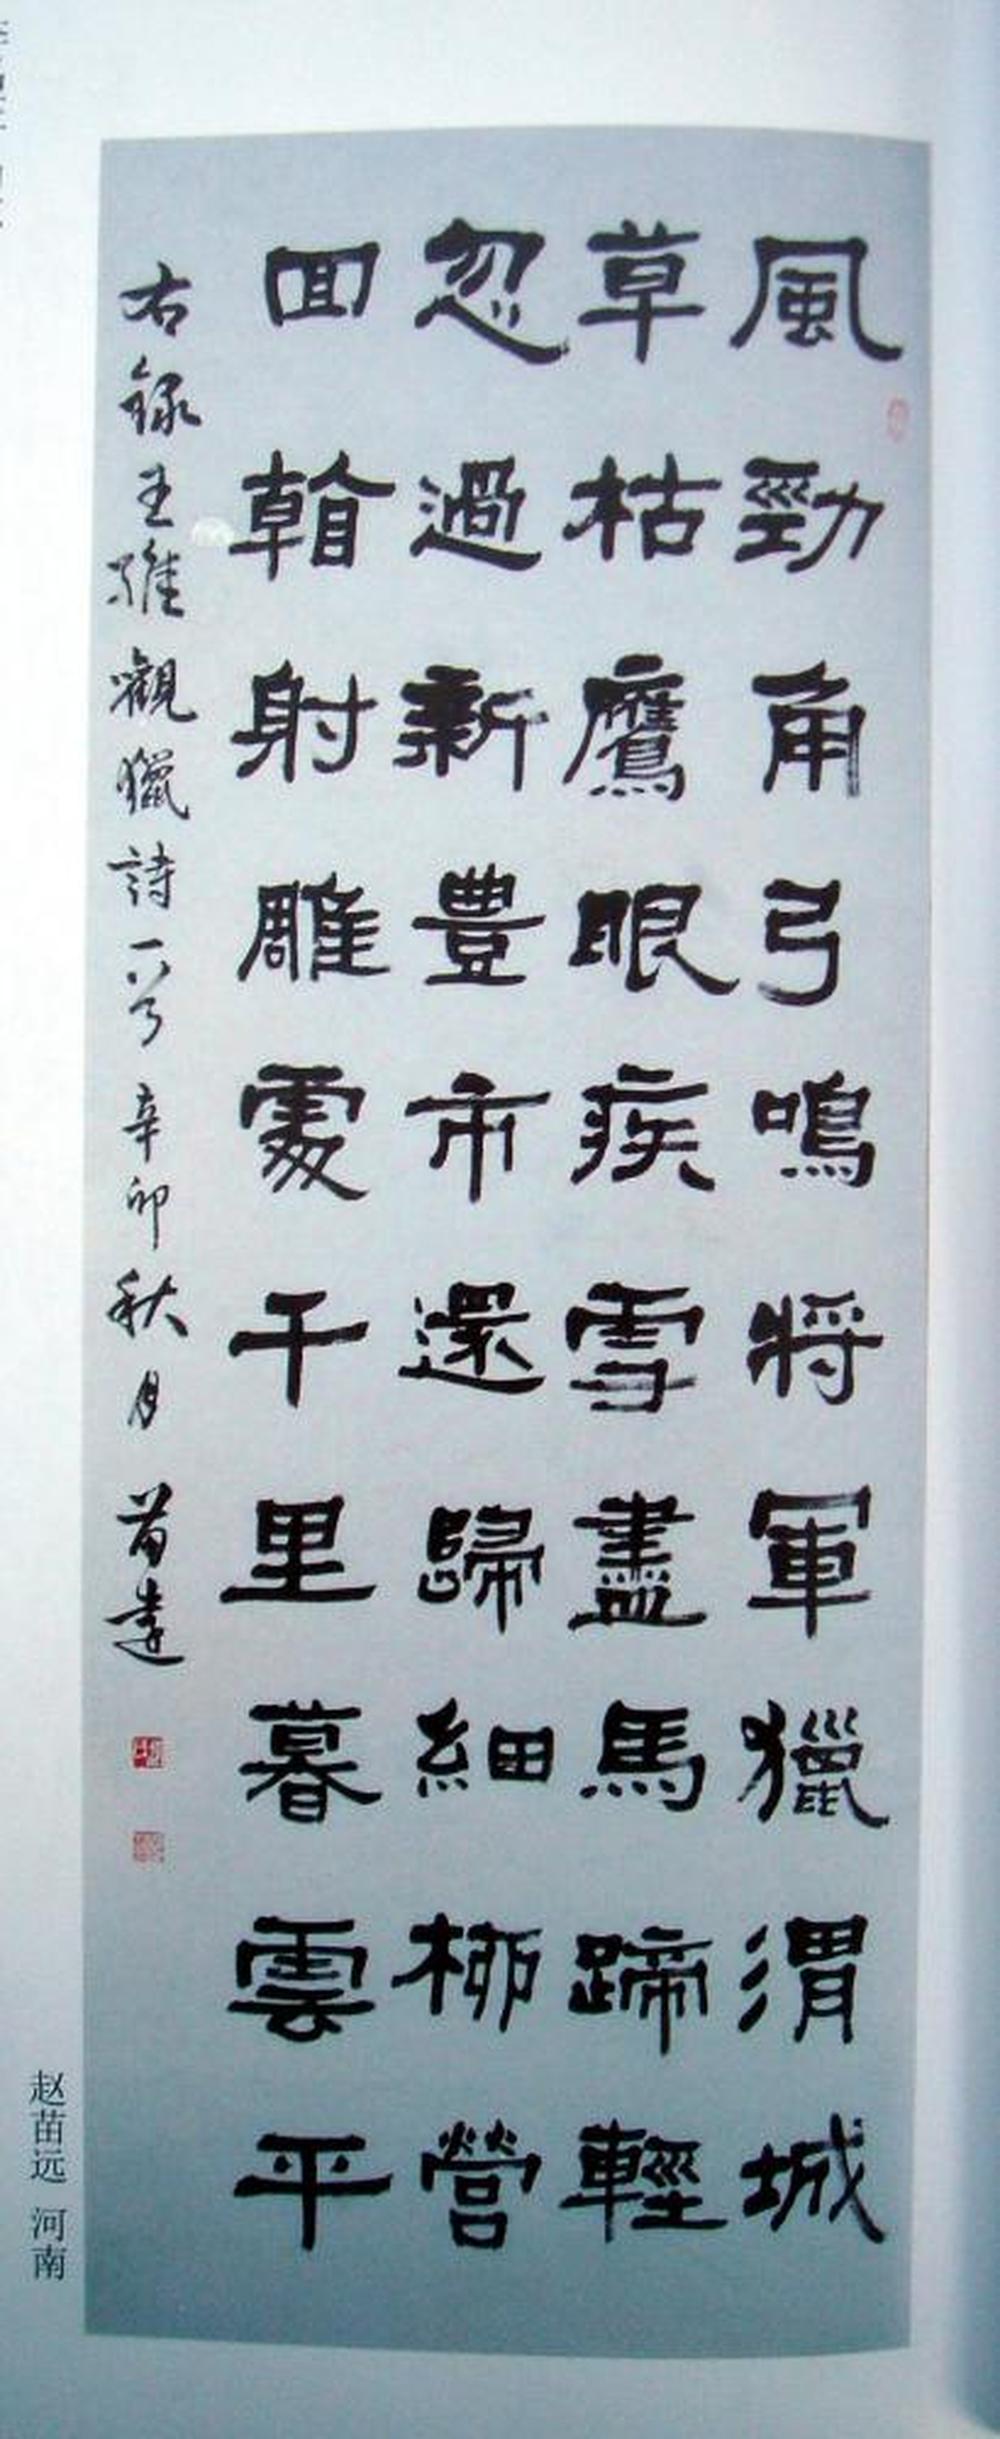 風勁角弓鳴將軍獵渭城
草枯鷹眼疾雪盡馬蹄輕
忽過新豊市還歸細柳營
回看射雕處千里暮雲平
右錄王維觀獵詩一首辛卯秋月苗遠
赵苗远 河南